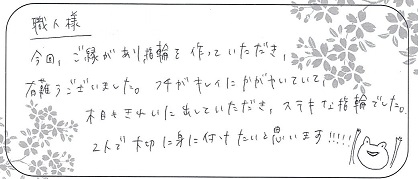 職人様
今回、ご縁があり指輪を作っていただき、
有難うございました。フチがキレイにかがやいていて、
木目もきれいに出していただき、ステキな指輪でした。
2人で大切に身に付けたいと思います!!!!!